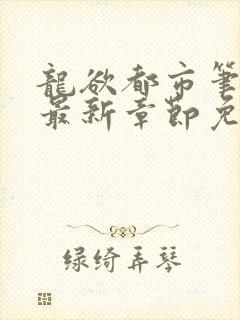 龍欲都市筆
最新章節免
绿绮弄琴